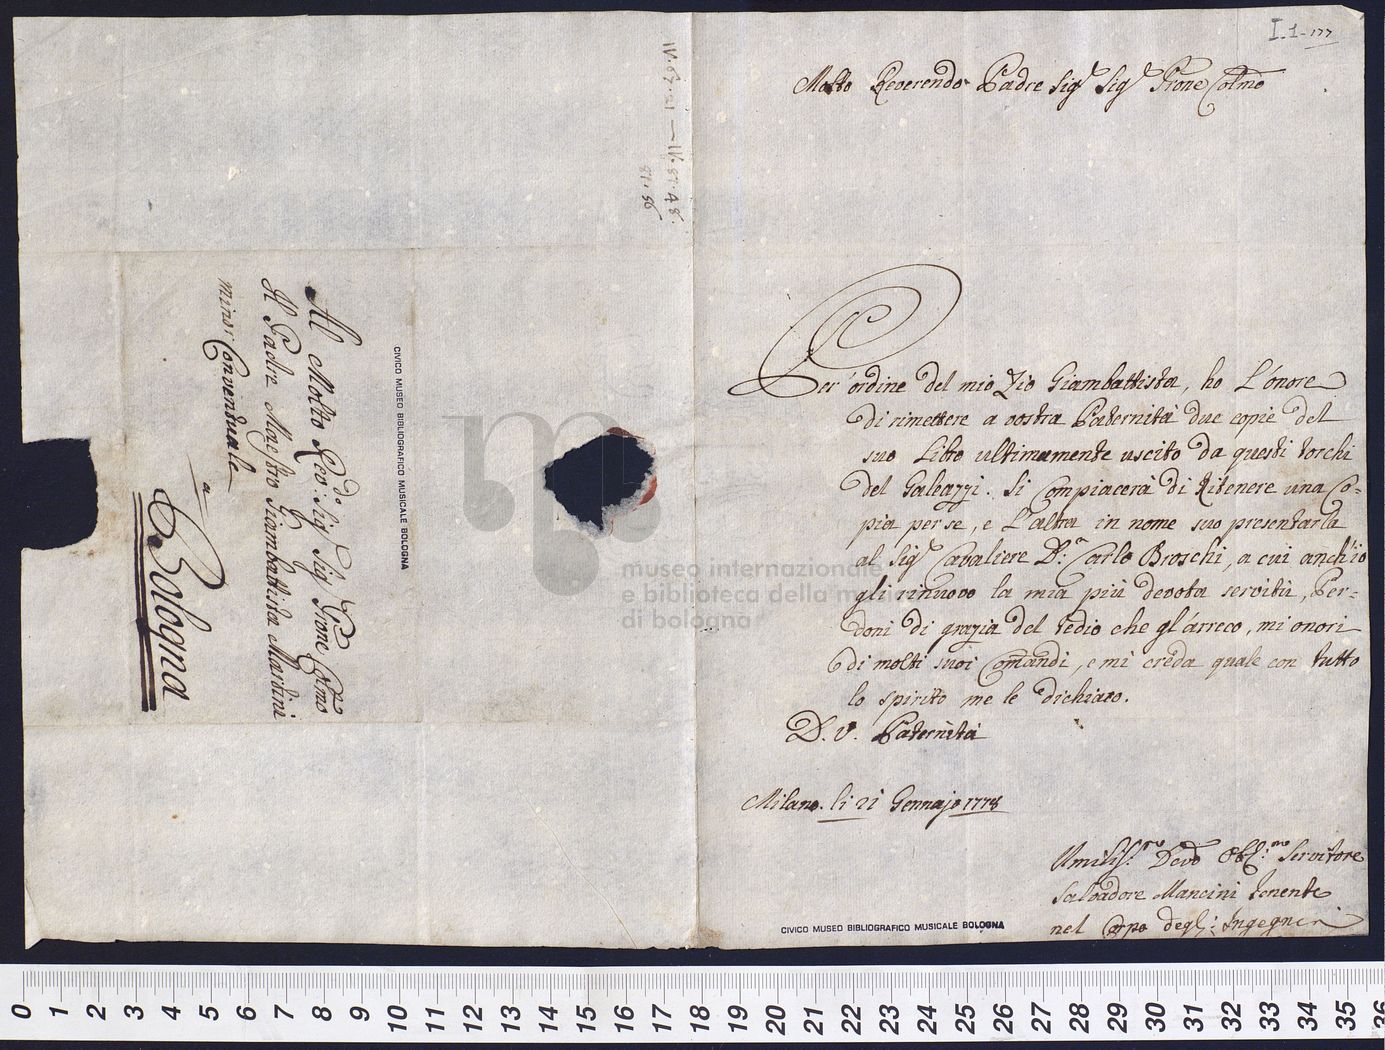 I.1-177
Molto Reverendo Padre Sig.r Sig.r Prone Colmo
Per ordine del mio Zio Giambattista, ho L'onore
di rimettere a vostra Paternità due copie del
suo Libro ultimamente uscito da questi torchi
del Galeazzi. Si compiacerà di Ritenere una Co-
pia per se, e L'altra in nome suo presentarla
al Sig.r Cavaliere D.n Carlo Broschi, a cui anch'io
gli rinuovo la mia più devota servitù, Per-
doni di grazia del tedio che gl'arreco, mi onori
di molti suoi Comandi, e mi creda quale con tutto
lo spirito me le dichiaro.
D. V. Paternità
Milano. li 21 Gennajo 1778
Umiliss.mo Devo Obl.mo Servitore
Salvadore Mancini Tenente
nel Corpo degl: Ingegneri
CIVICO MUSEO BIBLIOGRAFICO MUSICALE BOLOGNA
Al Molto Rev:do Sig.r Sig.r Prone Colmo
Il Padre Maestro Giambattista Martini
Minor Conventuale
a
Bologna
CIVICO MUSEO BIBLIOGRAFICO MUSICALE BOLOGNA
museo internazionale
e biblioteca della musica
di bologna
0 1 2 3 4 5 6 7 8 9 10 11 12 13 14 15 16 17 18 19 20 21 22 23 24 25 26 27 28 29 30 31 32 33 34 35 36